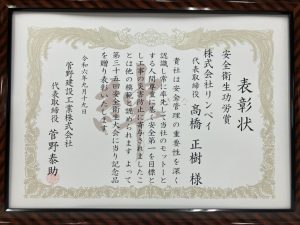 表彰状
安全衛生功労賞
株式会社リンペイ
代表取締役 高橋 正樹 様
貴社は安全管理の重要性を深く
認識し常に率先して当社のモットーと
する人間尊重に基く安全第一を目標と
し工事の災害防止に寄与されましたこ
とは他の模範と認められます よって
第三十五回安全衛生大会に当り記念品
を贈り表彰いたします。
令和六年九月十九日
菅野建設工業株式会社
代表取締役 菅野泰助